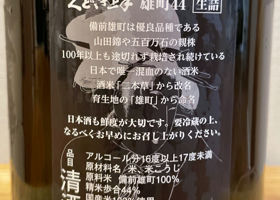 くどき上手 雄町44 生詰
備前雄町は優良品種であり
山田錦や五百万石の親株
100年以上も途切れず栽培され続けている
日本で唯一混血のない酒米
酒米「二本草」から改名
育生地の「雄町」から命名
日本酒も鮮度が大切です。要冷蔵の上、
なるべくお早めにお召し上がりください。
品目 清酒
アルコール分16度以上17度未満
原材料名/米、米こうじ
原料米 備前雄町100%
精米歩合44%
国産米100%使用